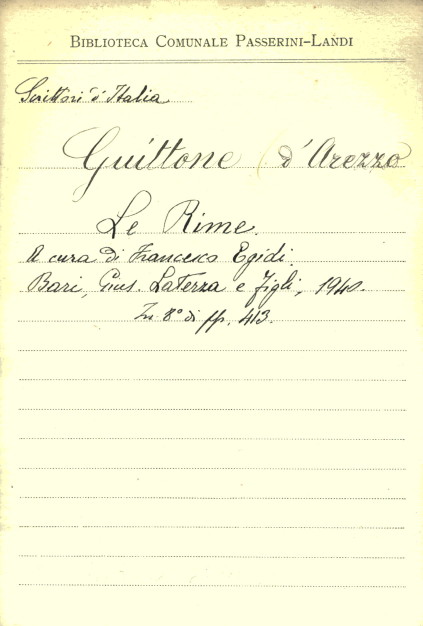 BIBLIOTECA COMUNALE PASSERINI-LANDI
Scrittori d'Italia
Guittone (d'Arezzo
Le Rime.
A cura di Francesco Egidi.
Bari, Gius. Laterza e figli, 1940.
In 8° di pp. 413.